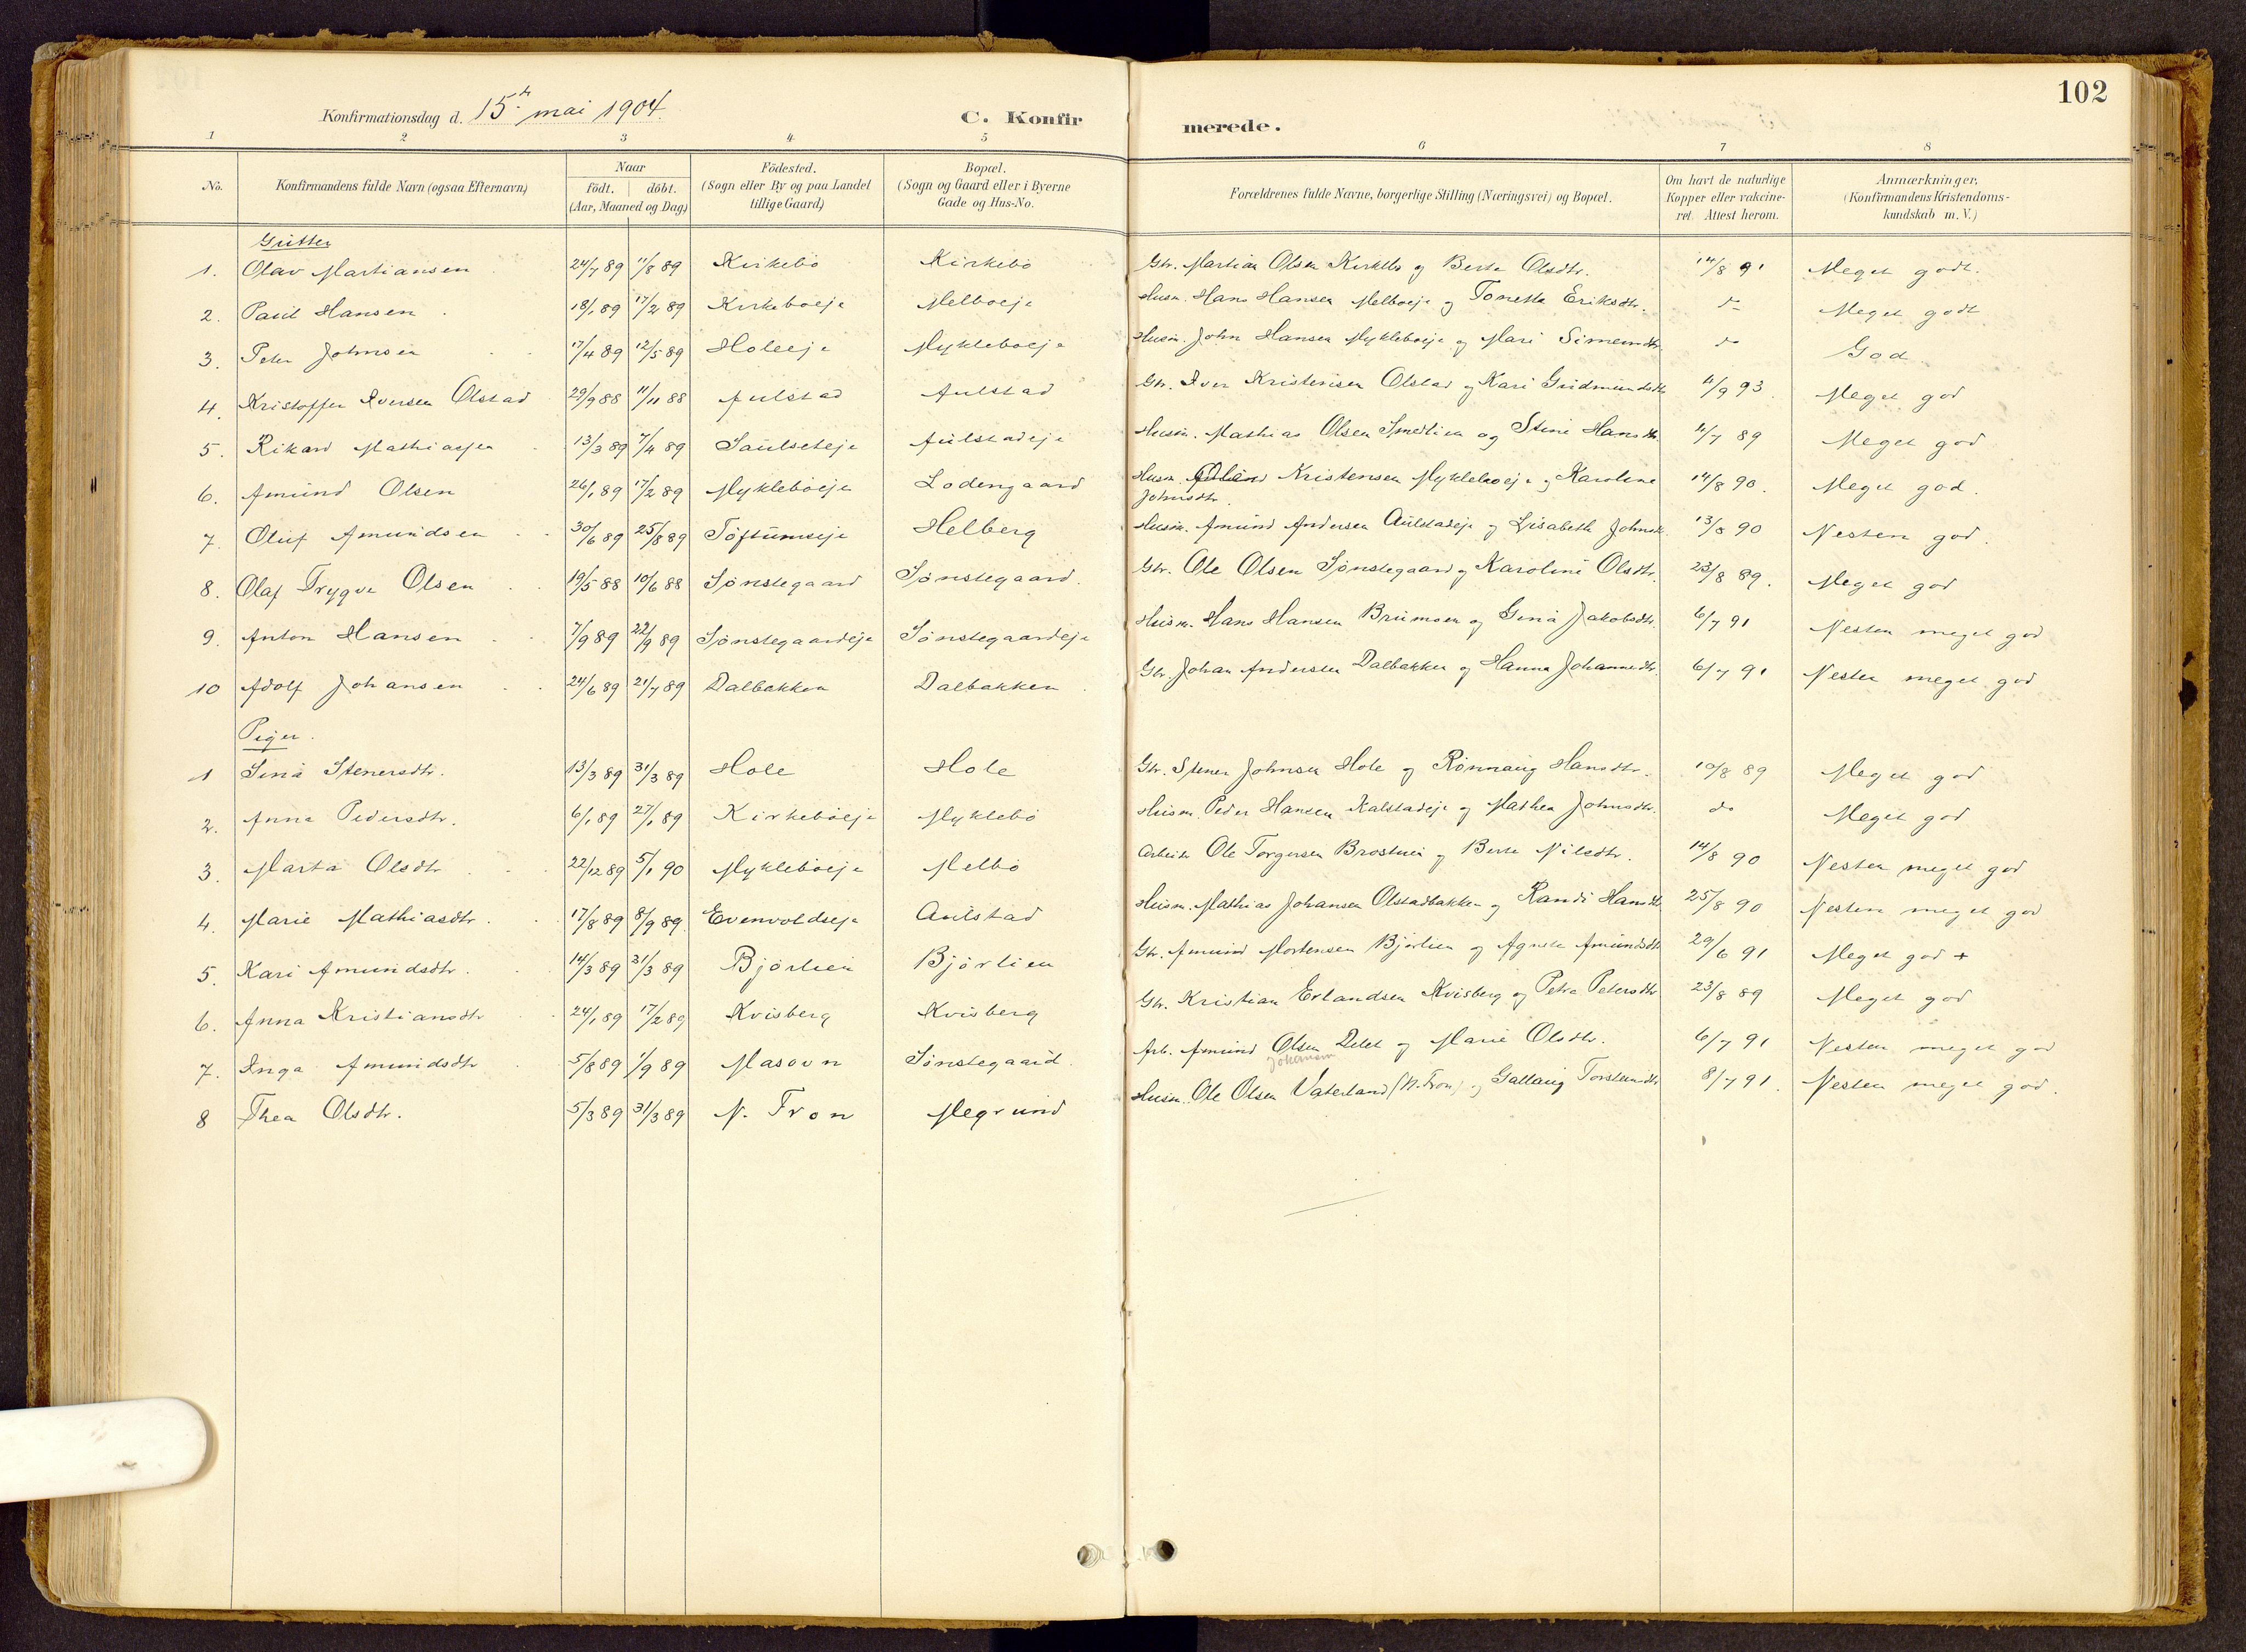 102
Konfirmationsdag d. 15de mai 1904.
C. Konfirmerede.
1 2 3 4 5 6 7 8
No.
Konfirmandens fulde Navn (ogsaa Efternavn)
Naar
födt. | döbt.
(Aar, Maaned og Dag)
Födested.
(Sogn eller By og paa Landet
tillige Gaard)
Bopæl.
(Sogn og Gaard eller i Byerne
Gade og Hus-No.
Forældrenes fulde Navne, borgerlige Stilling (Næringsvei) og Bopæl.
Om havt de naturlige
Kopper eller vakcine-
ret. Attest herom.
Anmærkninger,
(Konfirmandens Kristendoms-
kundskab m. V.)
Gutter
1. Olav Martiansen 24/7 89 11/8 89 Kirkebö Kirkebö Gbr. Martian Olsen Kirkebö og Berte Olsdtr. 14/8 91 Meget godt.
2. Paul Hansen 18/1 89 17/2 89 Kirkeböeje Melböeje Husm. Hans Hansen Melböeje og Tonette Eriksdtr. do Meget godt
3. Peter Johnsen 17/4 89 12/5 89 Holeeje Mykleböeje Husm. John Hansen Mykleböeje og Mari Simensdtr. do God
4. Kristoffer Iversen Olstad 29/9 88 11/11 88 Aulstad Aulstad Gbr. Iver Kristensen Olstad og Kari Gudmundsdtr 11/9 93. Meget god
5. Rikard Mathiassen 13/3 89 7/4 89 Saulseteje Aulstadeje Husm. Mathias Olsen Smedlien og Stine Hansdtr. 11/7 89 Meget god
6. Amund Olsen 26/1 89 17/2 89 Mykleböeje Lodengaard Husm. Kristensen Mykleböeje og Karoline
Johnsdtr. 14/8 90. Meget god.
7. Oluf Amundsen 30/6 89 25/8 89 Töftumseje Helberg Husm. Amund Andersen Aulstadeje og Lisabeth Johnsdtr. 13/8 90 Nesten god.
8. Olaf Trygve Olsen 19/5 88 10/6 88 Sönstegaard Sönstegaard. Gbr. Ole Olsen Sönstegaard og Karoline Olsdtr. 23/8 89. Meget god
9. Anton Hansen 7/9 89 22/9 89 Sönstegaardeje Sönstegaardeje Husm. Hans Hansen Brumoen og Gina Jakobsdtr. 6/7 91 Nesten meget god
10 Adolf Johansen 24/6 89 21/7 89 Dalbakken Dalbakken Gbr. Johan Andersen Dalbakken og Hanna Johannesdtr. 6/7 91 Nesten meget god
Piger.
1 Sina Stenersdtr. 13/3 89 31/3 89 Hole Hole Gbr. Stener Johnsen Hole og Rönnaug Hansdtr. 10/8 89 Meget god
2. Anna Pedersdtr. 6/1 89 27/1 89 Kirkeböeje Myklebö Husm. Peder Hansen Kalstadeje og Mathea Johnsdtr. do Meget god
3. Marta Olsdtr 22/12 89 5/1 90 Mykleböeje Melbö Arbeider Ole Torgersen Brostuen og Berte Nilsdtr. 14/8 90 Nesten meget god
4. Marie Mathiasdtr. 17/8 89 8/9 89 Evenvoldseje Aulstad Husm. Mathias Johansen Olstadbakken og Randi Hansdtr 25/8 90 Nesten meget god
5. Kari Amundsdtr. 14/3 89 31/3 89 Björlien Björlien Gbr. Amund Mortensen Björlien og Agnete Amundsdtr 29/6 91 Meget god +
6. Anna Kristiansdtr 24/1 89 17/2 89 Kvisberg Kvisberg Gbr. Kristian Erlandsen Kvisberg og Petra Petersdtr 23/8 89 Meget god
7. Inga Amundsdtr 5/8 89 1/9 89 Masovn Sönstegaard. Arb. Amund Olsen og Marie Olsdtr. 6/7 91 Nesten meget god
Johansen
8 Thea Olsdtr. 5/3 89 31/3 89 N. Fron Megrund Husm. Ole Olsen Vaterland (N. Fron) og Gallaug Torstensdtr 8/7 91. Nesten meget god.